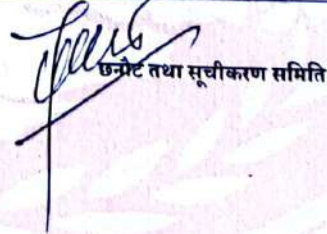 छनौट तथा सूचीकरण समिति